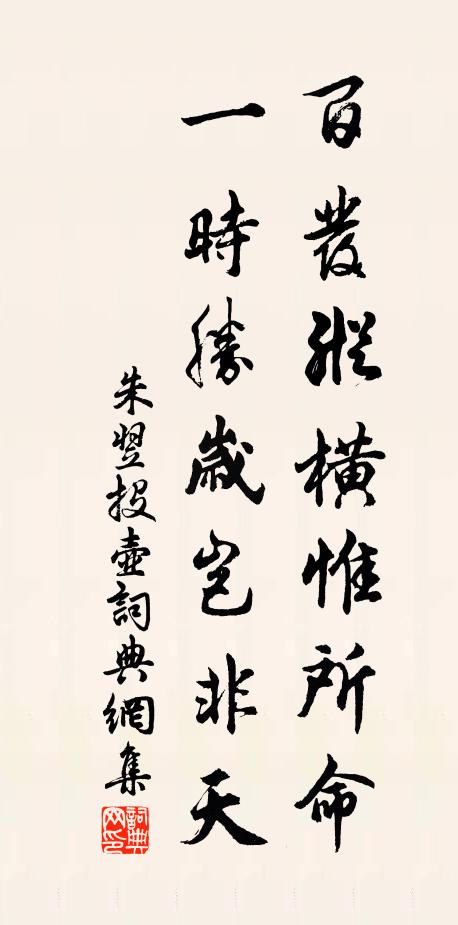 百發縱橫惟所命
一時勝歲豈非天
朱翌投壺詞典網集
詞典网印